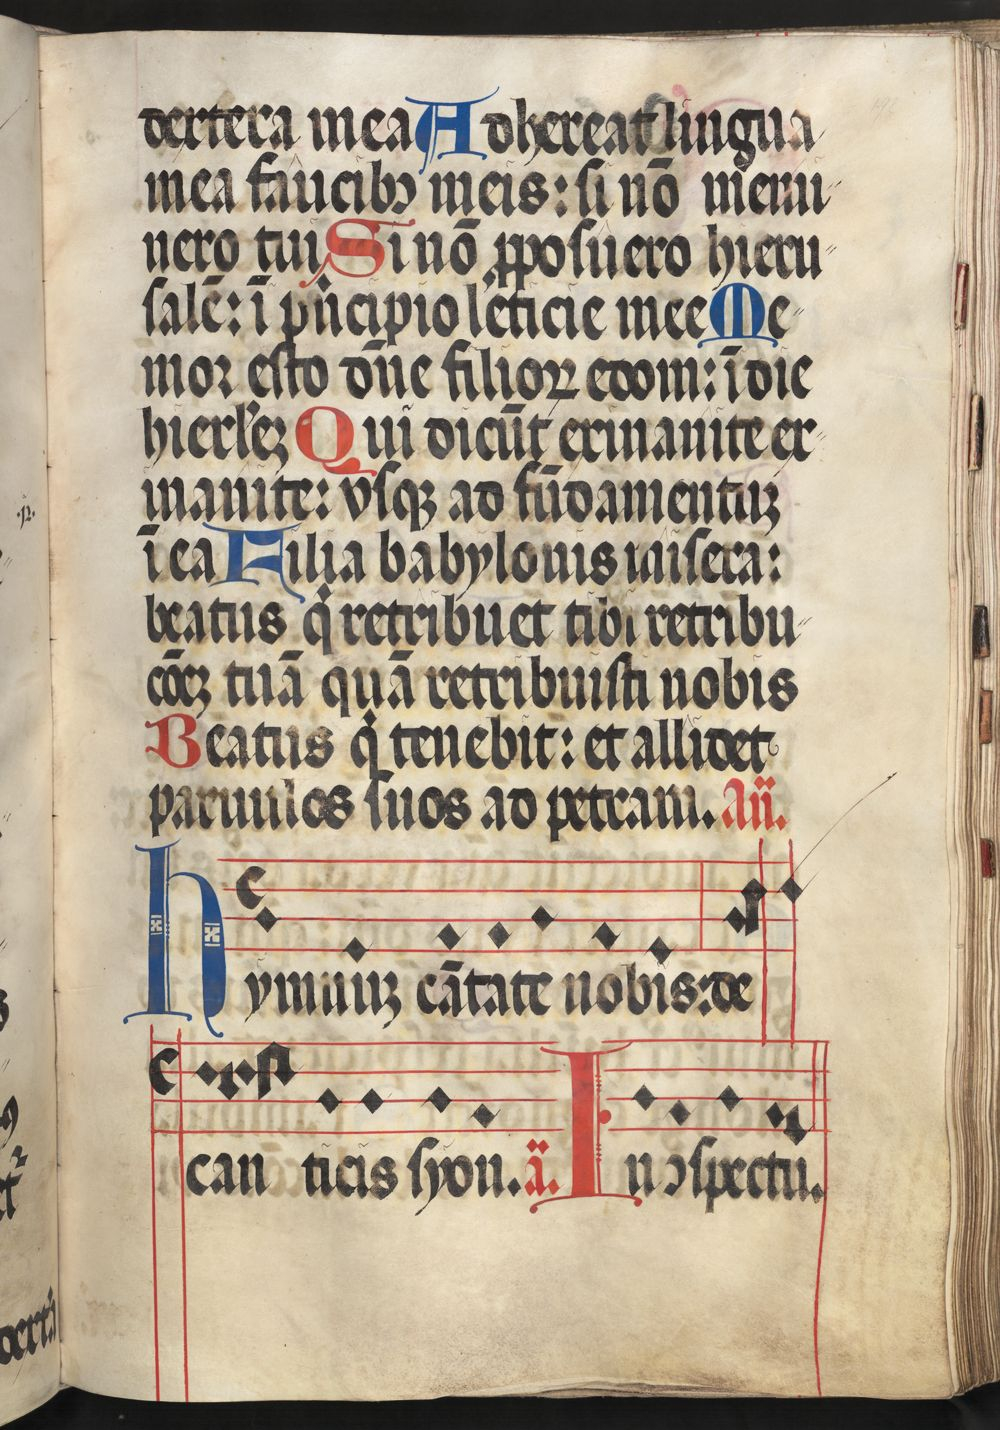 dextera mea Adhereat lingua
mea faucibꝰ meis: si nō memi-
nero tui Si nō ꝓposuero hieru-
salē: ī pͥncipio leticie mee Me-
mor esto dn̄e filioꝝ edom: ī die
hierlꝫ Qui dicūt exinanite ex-
inanite: vsqꝫ ad fūdamentuꝫ
ī ea Filia babylonis misera:
beatus qͥ retribuet tibi retribu-
cōeꝫ tuā quā retribuisti nobis
Beatus qͥ tenebit: et allidet
paruulos suos ad petram. añ.
hymnuꝫ cātate nobis: de
can ticis syon. ā. In ↄspectu.